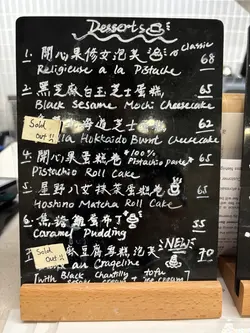 Desserts
1. 開心果修女泡芙 classic 68
Religieuse a la Pistache
2. 黑芝麻白玉芝士蛋糕 65
Black Sesame Mochi Cheesecake
Sold Out 芝士蛋糕 62
la Hokkaido Burnt Cheesecake
4. 開心果蛋糕卷 *100% Pistachio paste 65
Pistachio Roll Cake
5. 星野八女抹茶蛋糕卷 65
Hoshino Matcha Roll Cake
6. 焦糖雞蛋布丁 55
Caramel Pudding
Sold Out 麻豆腐泡芙 NEW 70
au Craqueline
[with Black Chantilly tofu